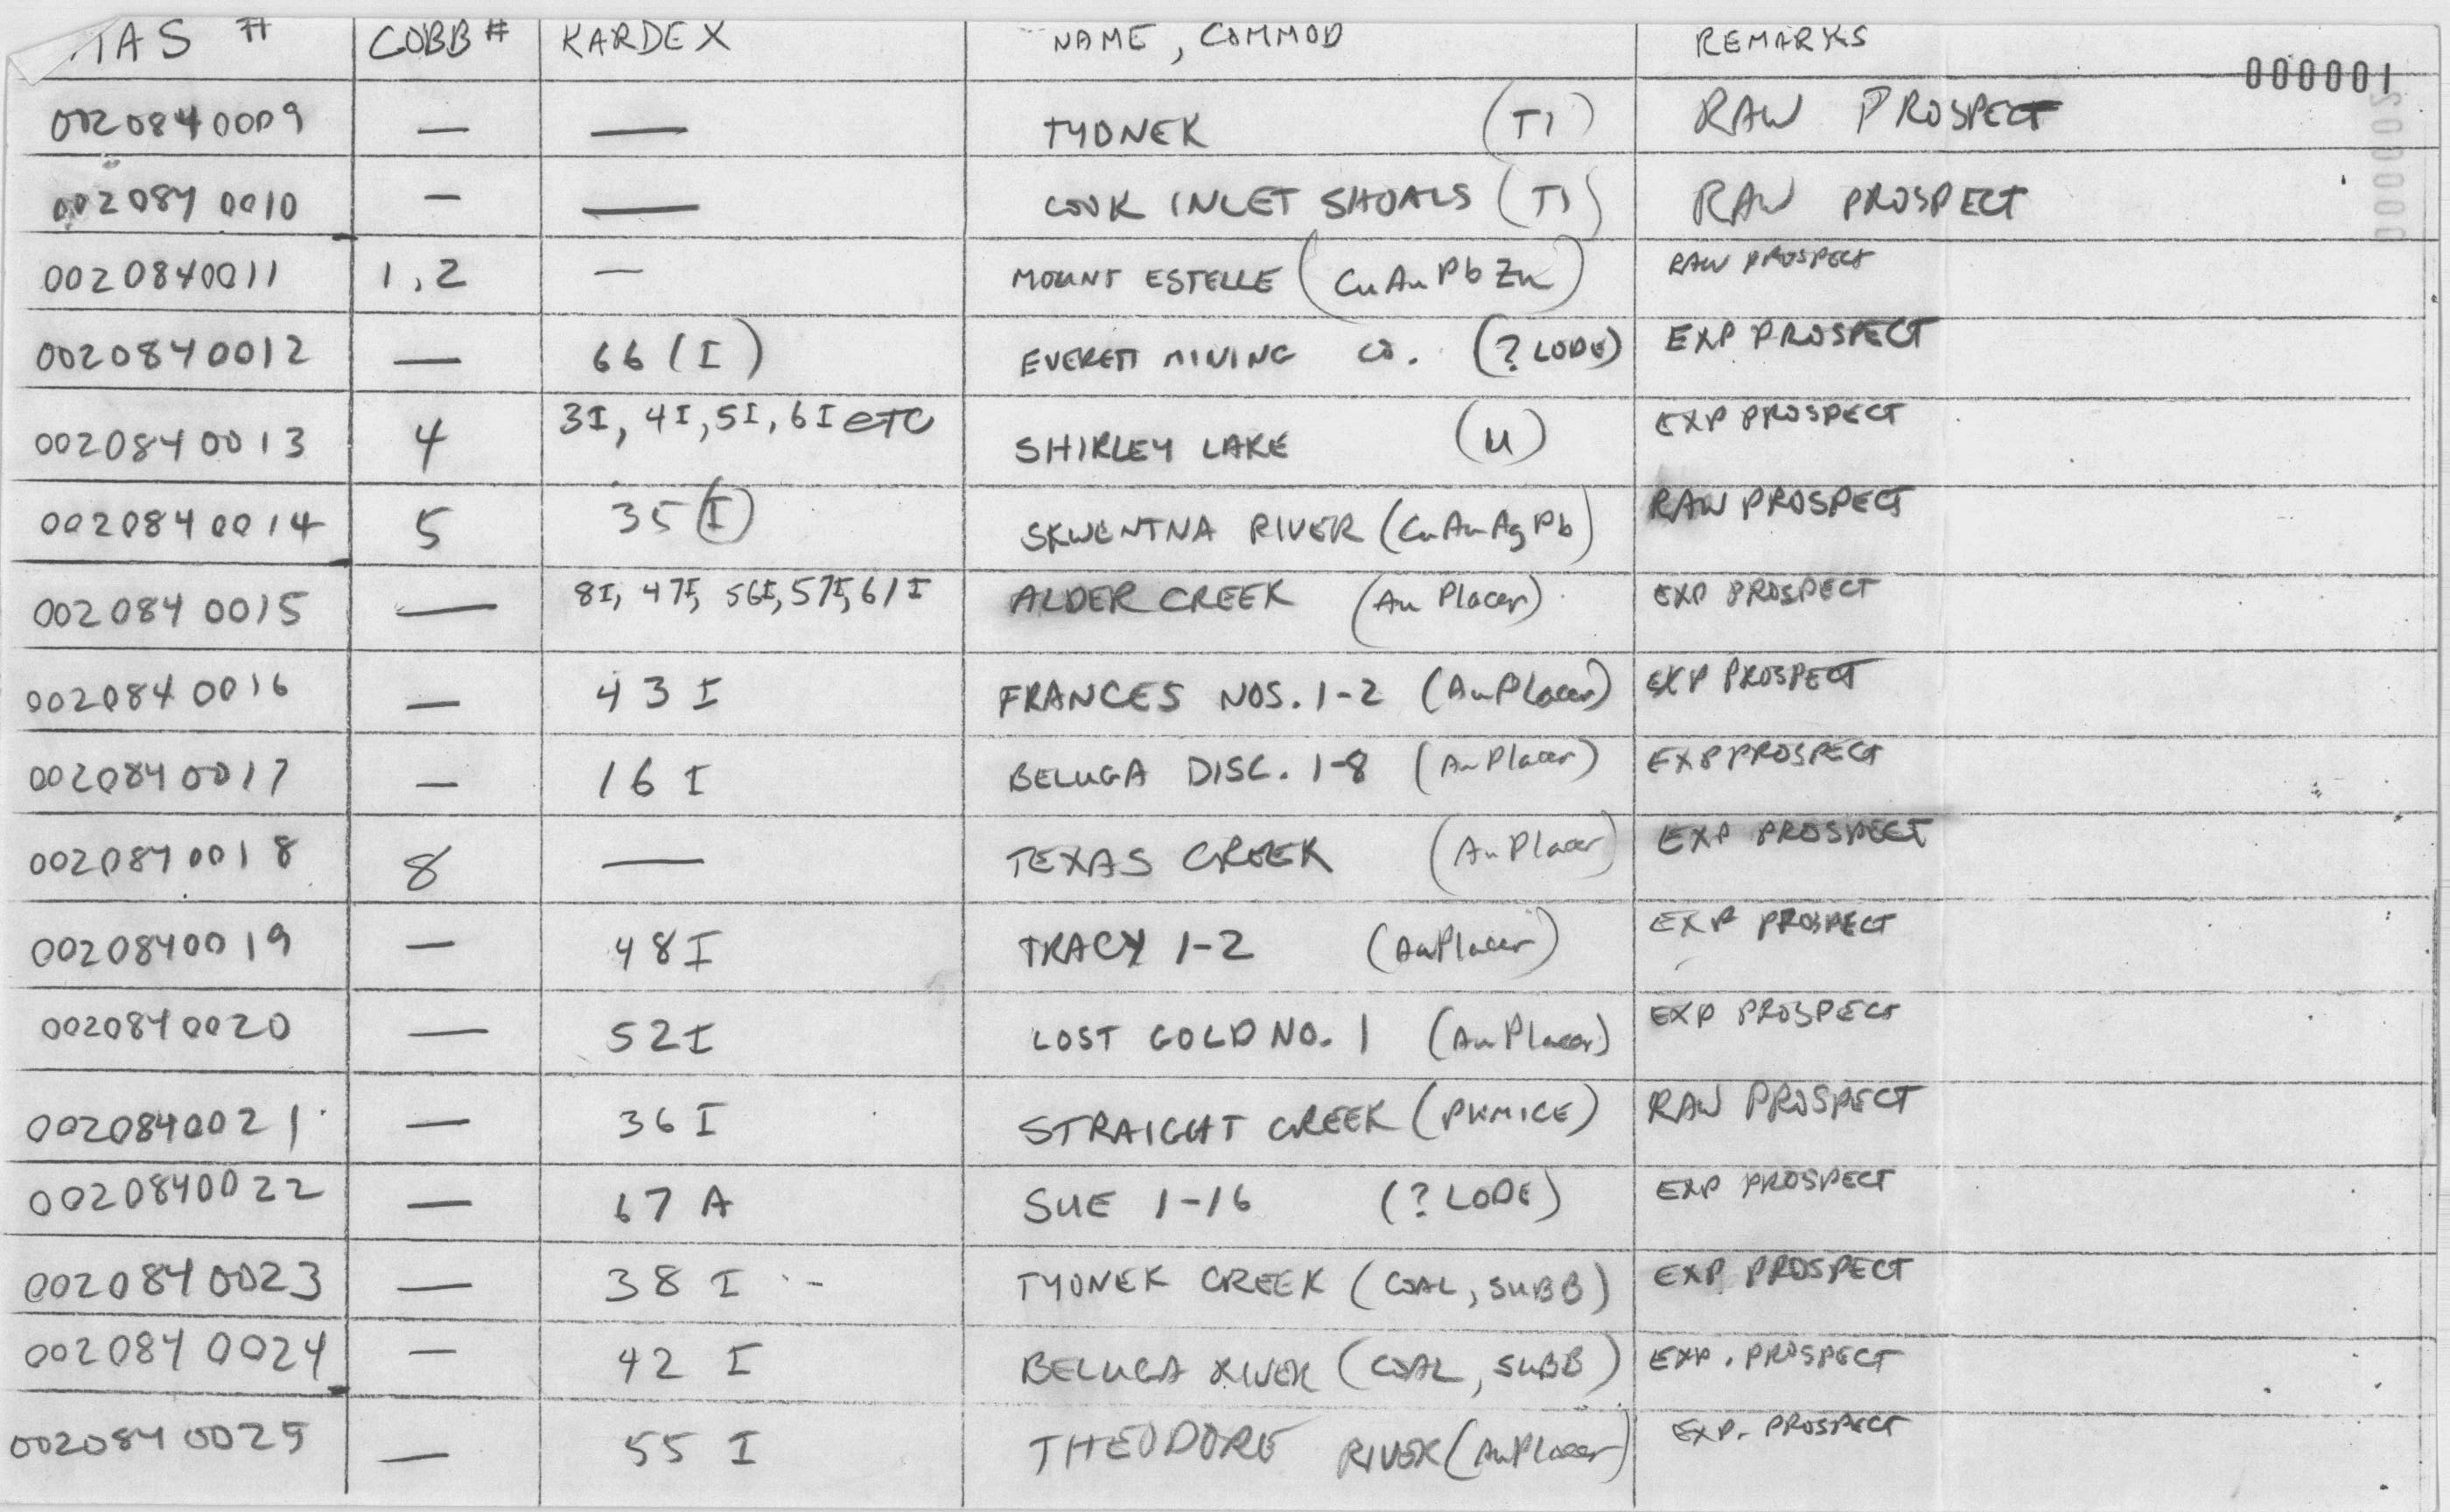 MAS # COBB # KARDEX NAME, COMMOD REMARKS
000001
0020840009 — — TYONEK (TI) RAW PROSPECT
0000002
0020840010 — — COOK INLET SHOALS (TI) RAW PROSPECT
0020840011 1,2 — MOUNT ESTELLE (CuAuPbZn) RAW PROSPECT
0020840012 — 66 (I) EVERETT MINING CO. (? LODE) EXP PROSPECT
0020840013 4 3I, 4I, 5I, 6I ETC SHIRLEY LAKE (U) EXP PROSPECT
0020840014 5 35 (I) SKWENTNA RIVER (CuAuAgPb) RAW PROSPECT
0020840015 — 8I, 47I, 56I, 57I, 61I ALDER CREEK (Au Placer) EXP PROSPECT
0020840016 — 43 I FRANCES NOS. 1-2 (Au Placer) EXP PROSPECT
0020840017 — 16 I BELUGA DISC. 1-8 (Au Placer) EXP PROSPECT
0020840018 8 — TEXAS CREEK (Au Placer) EXP PROSPECT
0020840019 — 48 I TRACY 1-2 (Au Placer) EXP PROSPECT
0020840020 — 52I LOST GOLD NO. 1 (Au Placer) EXP PROSPECT
0020840021 — 36 I STRAIGHT CREEK (PUMICE) RAW PROSPECT
0020840022 — 67 A SUE 1-16 (? LODE) EXP PROSPECT
0020840023 — 38 I TYONEK CREEK (COAL, SUBB) EXP PROSPECT
0020840024 — 42 I BELUGA RIVER (COAL, SUBB) EXP. PROSPECT
0020840025 — 55 I THEODORE RIVER (Au Placer) EXP. PROSPECT